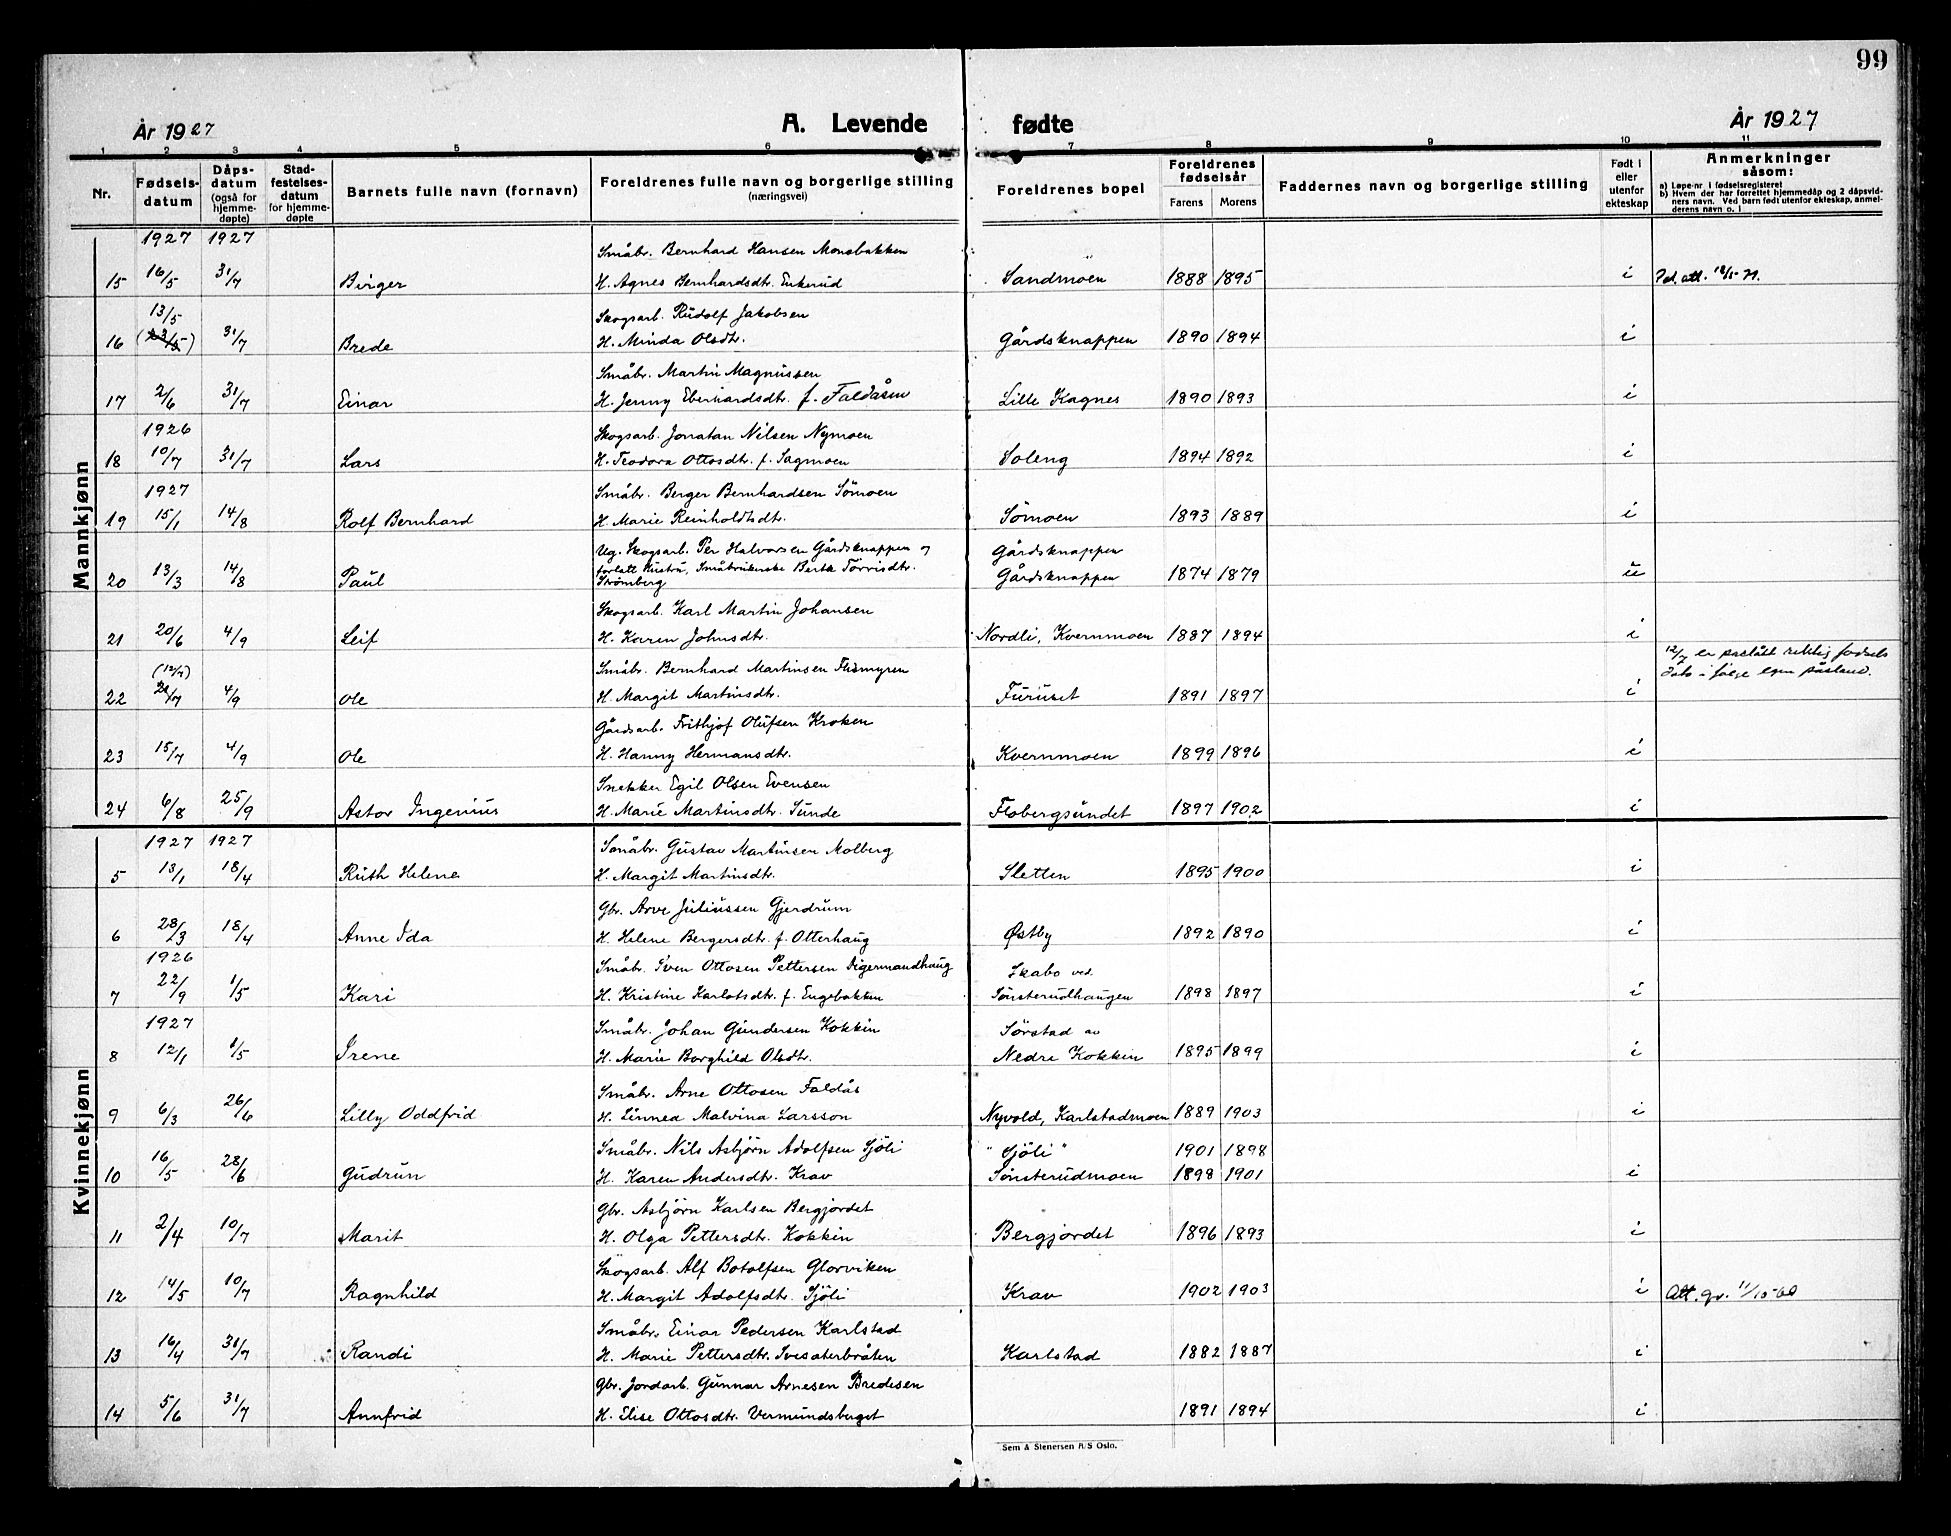 99
År 1927 A. Levende fødte År 1927
1 2 3 4 5 6 7 8 9 10 11
Nr. Fødselsdatum Dåpsdatum (også for hjemmedøpte) Stadfestelsesdatum for hjemmedøpte Barnets fulle navn (fornavn) Foreldrenes fulle navn og borgerlige stilling (næringsvei) Foreldrenes bopel Foreldrenes fødselsår Farens Morens Faddernes navn og borgerlige stilling Født i eller utenfor ekteskap Anmerkninger såsom:
a) Løpe-nr. i fødselsregisteret
b) Hvem der har forrettet hjemmedåp og 2 dåpsvidners navn. Ved barn født utenfor ekteskap, anmelderens navn o. l
Mannkjønn
1927 1927 Småbr. Bernhard Hansen Monsbakken
15 16/5 31/7 Birger H. Agnes Bernhardsdtr. Enkerud Sandmoen 1888 1895 i
13/5 Skogsarb. Rudolf Jakobsen
16 (23/5) 31/7 Brede H. Minda Olsdtr. Gårdsknappen 1890 1894 i
Småbr. Martin Magnussen
17 2/6 31/7 Einar H. Jenny Eberhardsdtr. f. Faldåsen Lille Kagnes 1890 1893 i
1926 Skogsarb. Jonatan Nilsen Nymoen
18 10/7 31/7 Lars H. Teodora Ottosdtr. f. Sagmoen Soleng 1894 1892 i
1927 Småbr. Berger Bernhardsen Sömoen
19 15/1 14/8 Rolf Bernhard H. Marie Reinholdtsdtr. Sömoen 1893 1889 i
Ug. Skogsarb. Per Halvorsen Gårdsknappen og Gårdsknappen
20 13/3 14/8 Paul forlatt Hustru, Småbrukerske Berte Törrisdtr. Strömberg Gårdsknappen 1874 1879 u
Skogsarb. Karl Martin Johansen
21 20/6 4/9 Leif H. Karen Johnsdtr. Nordli, Kvernmoen 1887 1894 i
(12/7) Småbr. Bernhard Martinsen Flismyren 12/7 er påstått riktig fødsels
22 21/7 4/9 Ole H. Margit Martinsdtr. Furuset 1891 1897 i dato i følge egen påstand.
Gårdsarb. Frithjof Olufsen Kroken
23 15/7 4/9 Ole H. Hanny Hermansdtr. Kvernmoen 1899 1896 i
Snekker Egil Olsen Evensen
24 6/8 25/9 Astor Ingenius H. Marie Martinsdtr. Sunde Flobergsundet 1897 1902 i
Kvinnekjønn
1927 1927 Småbr. Gustav Martinsen Molberg
5 13/1 18/4 Ruth Helene H. Margit Martinsdtr. Sletten 1895 1900 i
Gbr. Arve Juliussen Gjerdrum
6 28/3 18/4 Anne Ida H. Helene Bergersdtr. f. Otterhaug Østby 1892 1890 i
1926 Småbr. Sven Ottosen Pettersen Digermandhaug Skabo ved
7 22/9 1/5 Kari H. Kristine Karlotsdtr. f. Engebakken Sönsterudhaugen 1898 1897 i
1927 Småbr. Johan Gundersen Kokkin Sörstad av
8 12/1 1/5 Irene H. Marie Borghild Olsdtr. Nedre Kokkin 1895 1899 i
Småbr. Arne Ottosen Faldås
9 6/3 26/6 Lilly Oddfrid H. Linnea Malvina Larsson Nyvold, Karlstadmoen 1889 1903 i
Småbr. Nils Asbjörn Adolfsen Sjöli "Sjöli" 1901 1898
10 16/5 28/6 Gudrun H. Karen Andersdtr. Krav Sönsterudmoen 1898 1901 i
Gbr. Asbjörn Karlsen Bergjordet
11 2/4 10/7 Marit H. Olga Pettersdtr. Kokkin Bergjordet 1896 1893 i
Skogsarb. Alf Botolfsen Glorviken
12 14/5 10/7 Ragnhild H. Margit Adolfsdtr. Sjöli Krav 1902 1903 i Att. gv. 11/10-60
Småbr. Einar Pedersen Karlstad
13 16/4 31/7 Randi H. Marie Pettersdtr. Svesaterbråten Karlstad 1882 1887 i
Gbr. Jordarb. Gunnar Arnesen Bredesen
14 5/6 31/7 Annfrid H. Elise Ottosdtr. Vermundsberget 1891 1894 i
Sem & Stenersen A/S Oslo.